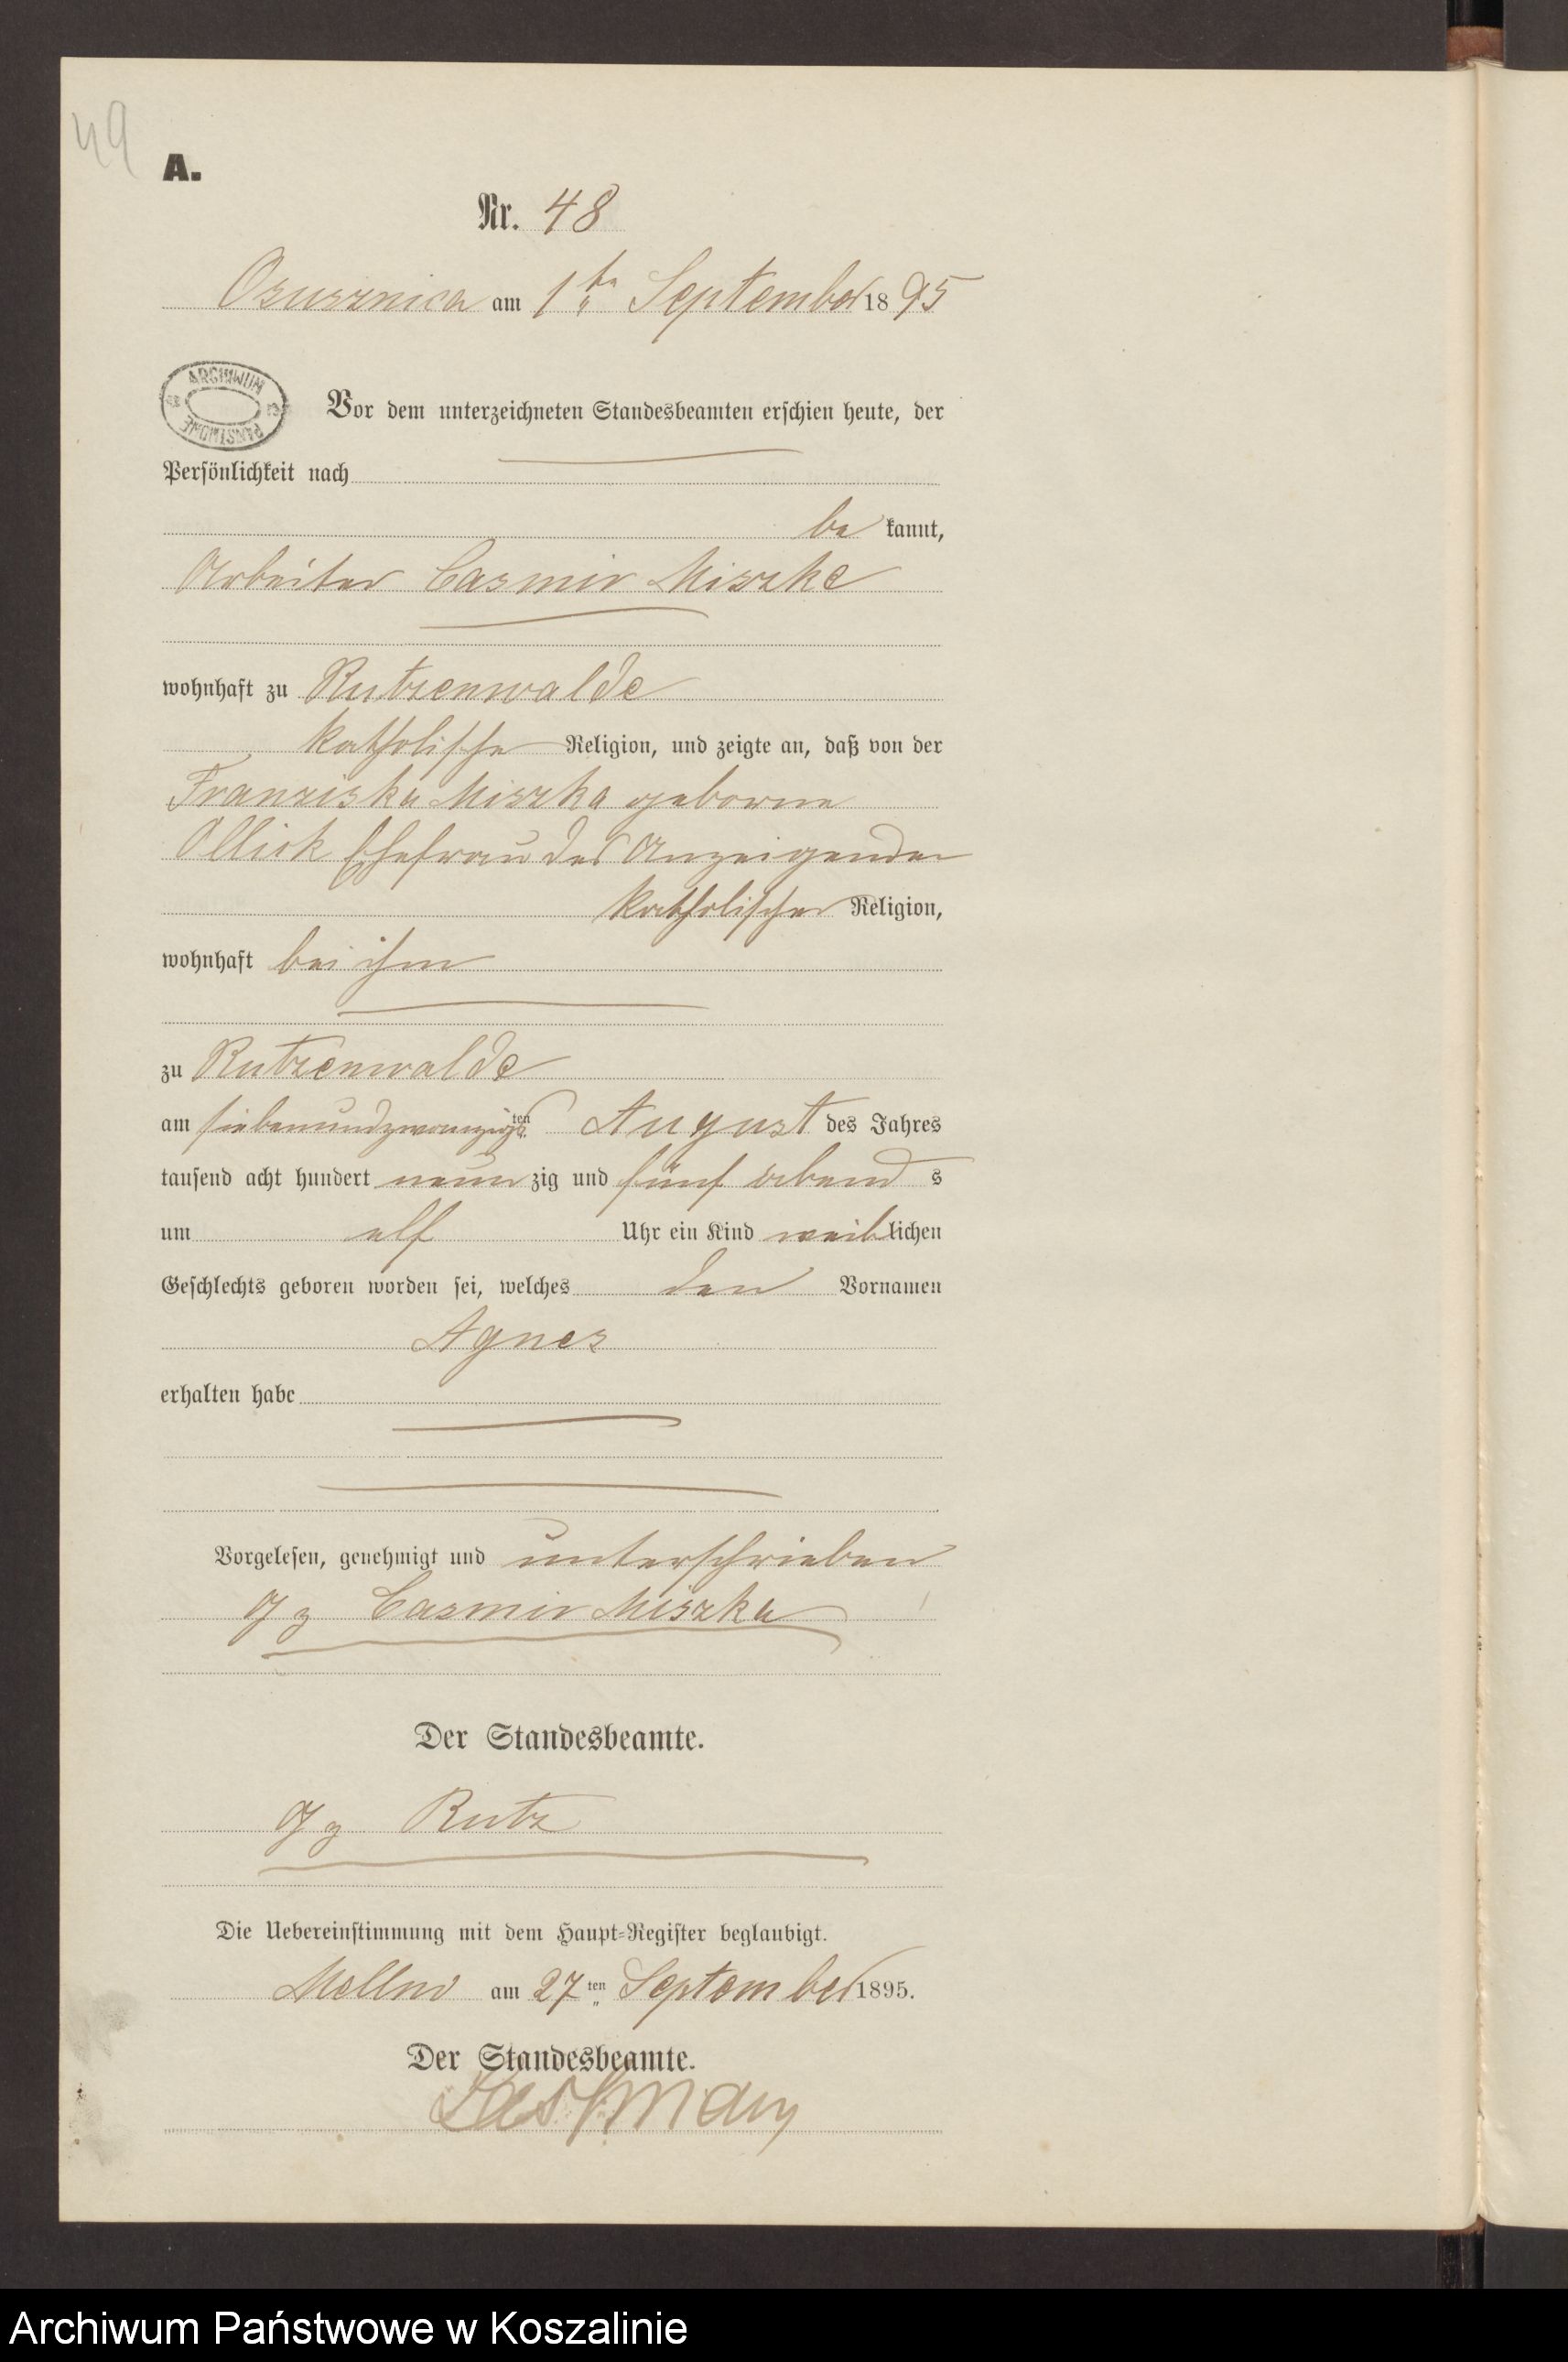 49
A.
Nr. 48
Osusznica am 1ten September 1895
ARCHIWUM PAŃSTWOWE
Vor dem unterzeichneten Standesbeamten erschien heute, der
Persönlichkeit nach
be kannt,
Arbeiter Casmir Miszke
wohnhaft zu Rutzenwalde
katholische Religion, und zeigte an, daß von der
Franziska Miszka geborne
Ollick Ehefrau des Anzeigenden
katholischer Religion,
wohnhaft bei ihm
zu Rutzenwalde
am siebenundzwanzigsten August des Jahres
tausend acht hundert neunzig und fünf abends
um elf Uhr ein Kind weiblichen
Geschlechts geboren worden sei, welches den Vornamen
Agnes
erhalten habe
Vorgelesen, genehmigt und unterschrieben
gz Casmir Miszka
Der Standesbeamte.
gz Rutz
Die Uebereinstimmung mit dem Haupt-Register beglaubigt.
am 27ten September 1895.
Der Standesbeamte.
Archiwum Państwowe w Koszalinie